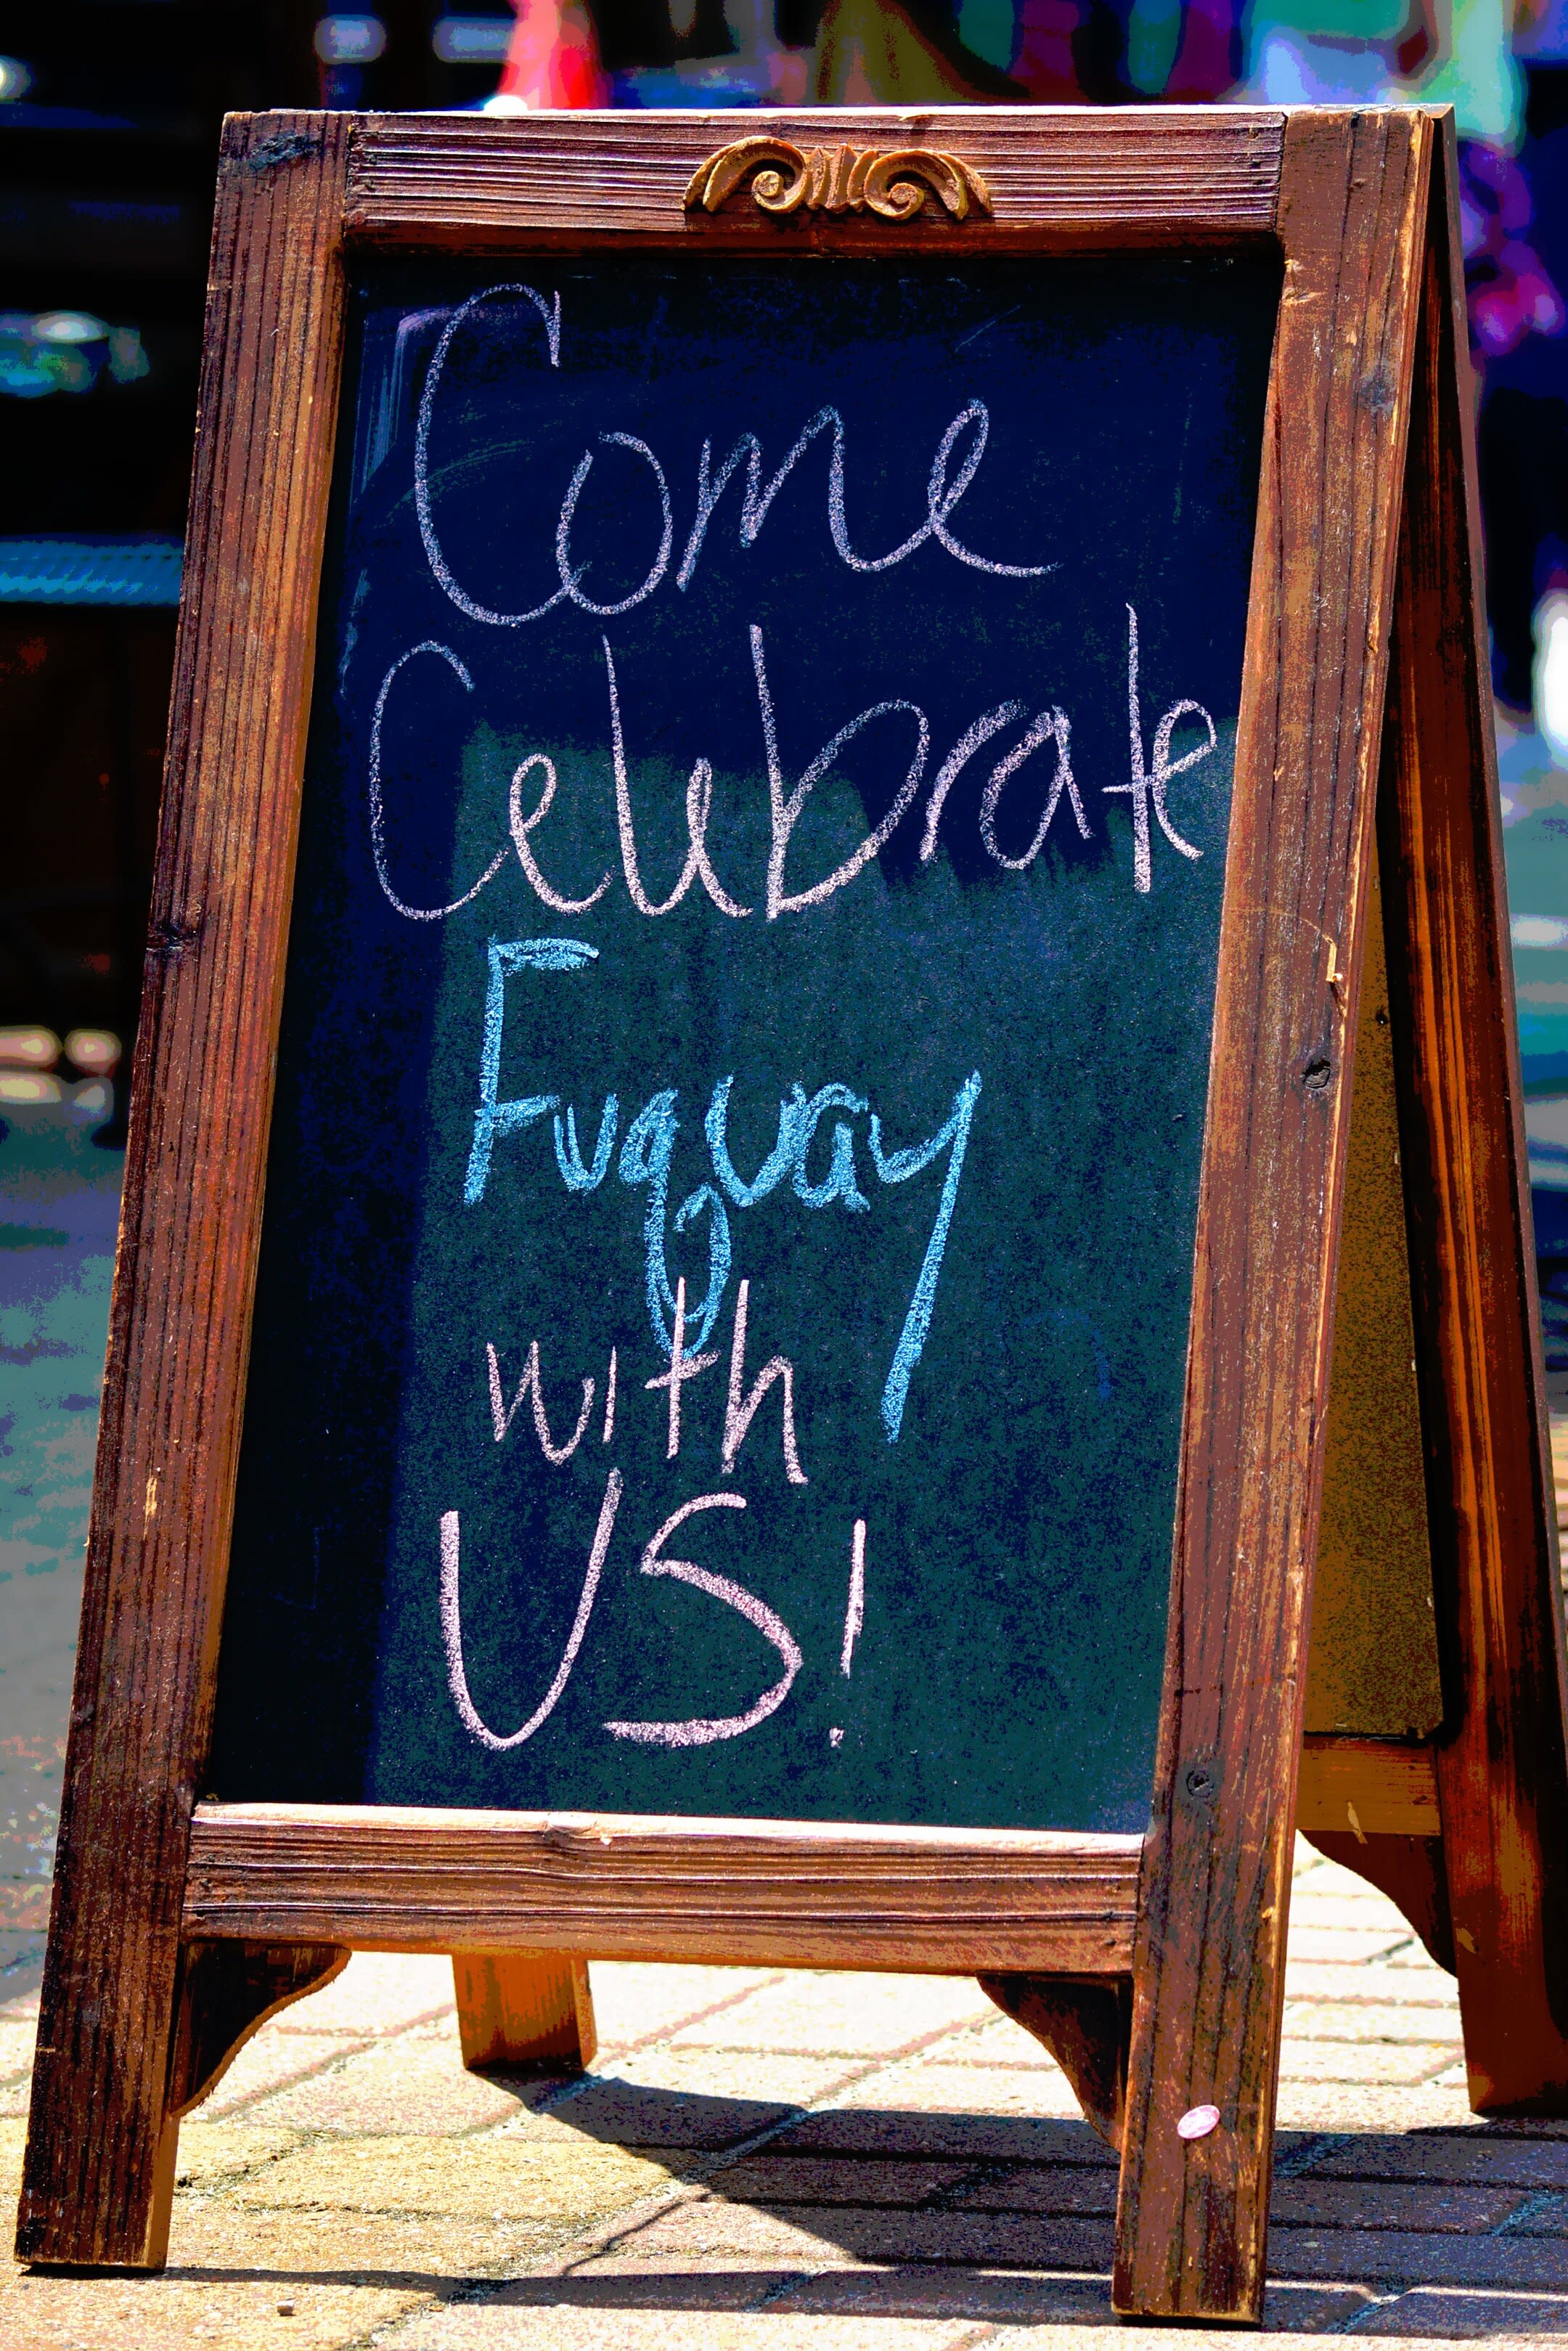 Come
Celebrate
Fuquay
with
US!